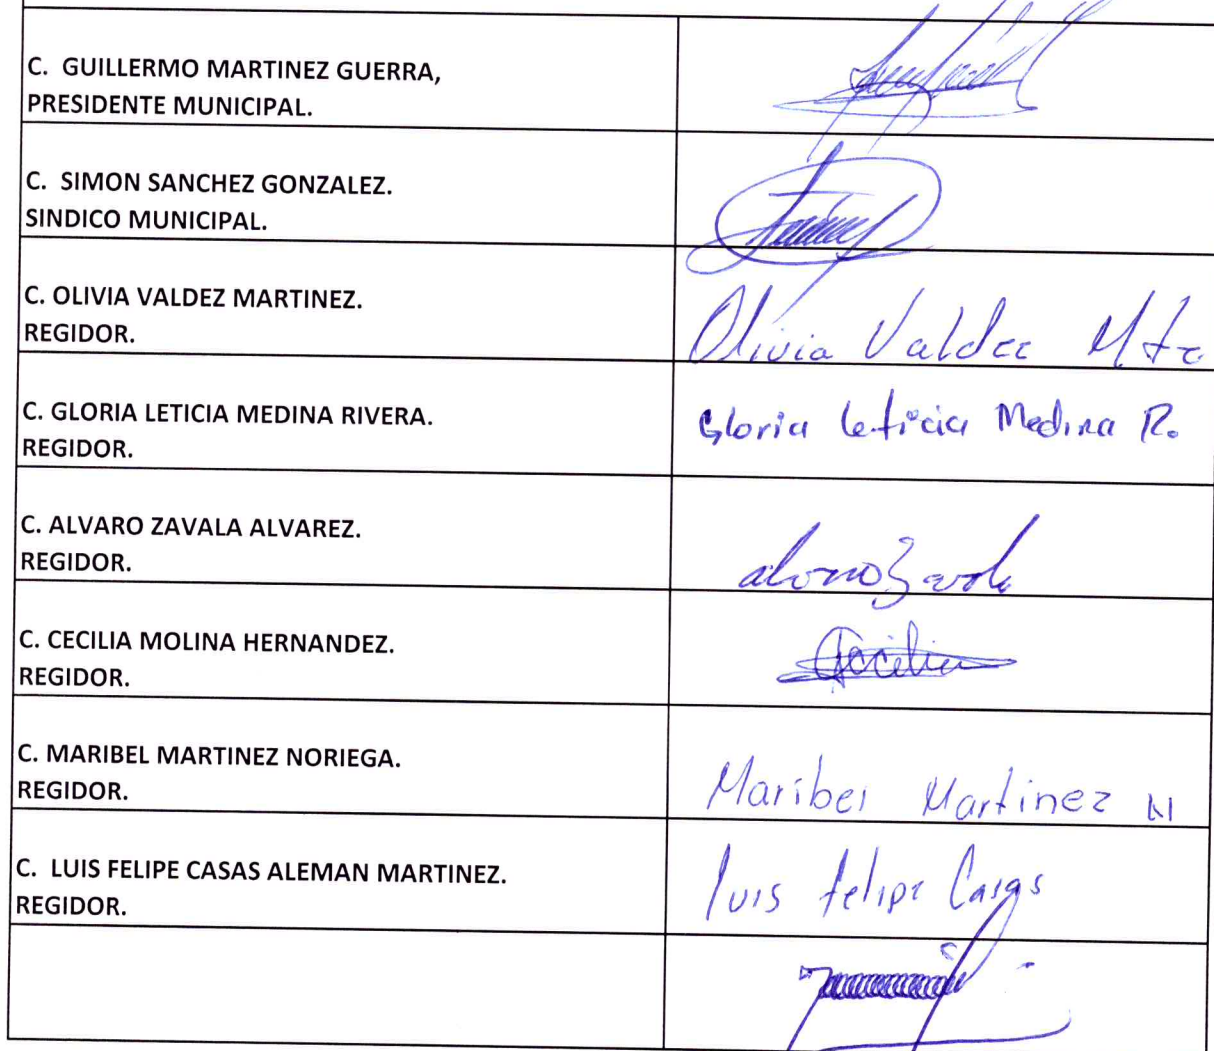 C. GUILLERMO MARTINEZ GUERRA,
PRESIDENTE MUNICIPAL.
C. SIMON SANCHEZ GONZALEZ.
SINDICO MUNICIPAL.
C. OLIVIA VALDEZ MARTINEZ.
REGIDOR.
Olivia Valdez Mtz
C. GLORIA LETICIA MEDINA RIVERA.
REGIDOR.
Gloria Leticia Medina R.
C. ALVARO ZAVALA ALVAREZ.
REGIDOR.
C. CECILIA MOLINA HERNANDEZ.
REGIDOR.
Cecilia
C. MARIBEL MARTINEZ NORIEGA.
REGIDOR.
Maribel Martinez N
C. LUIS FELIPE CASAS ALEMAN MARTINEZ.
REGIDOR.
luis felipe Casas